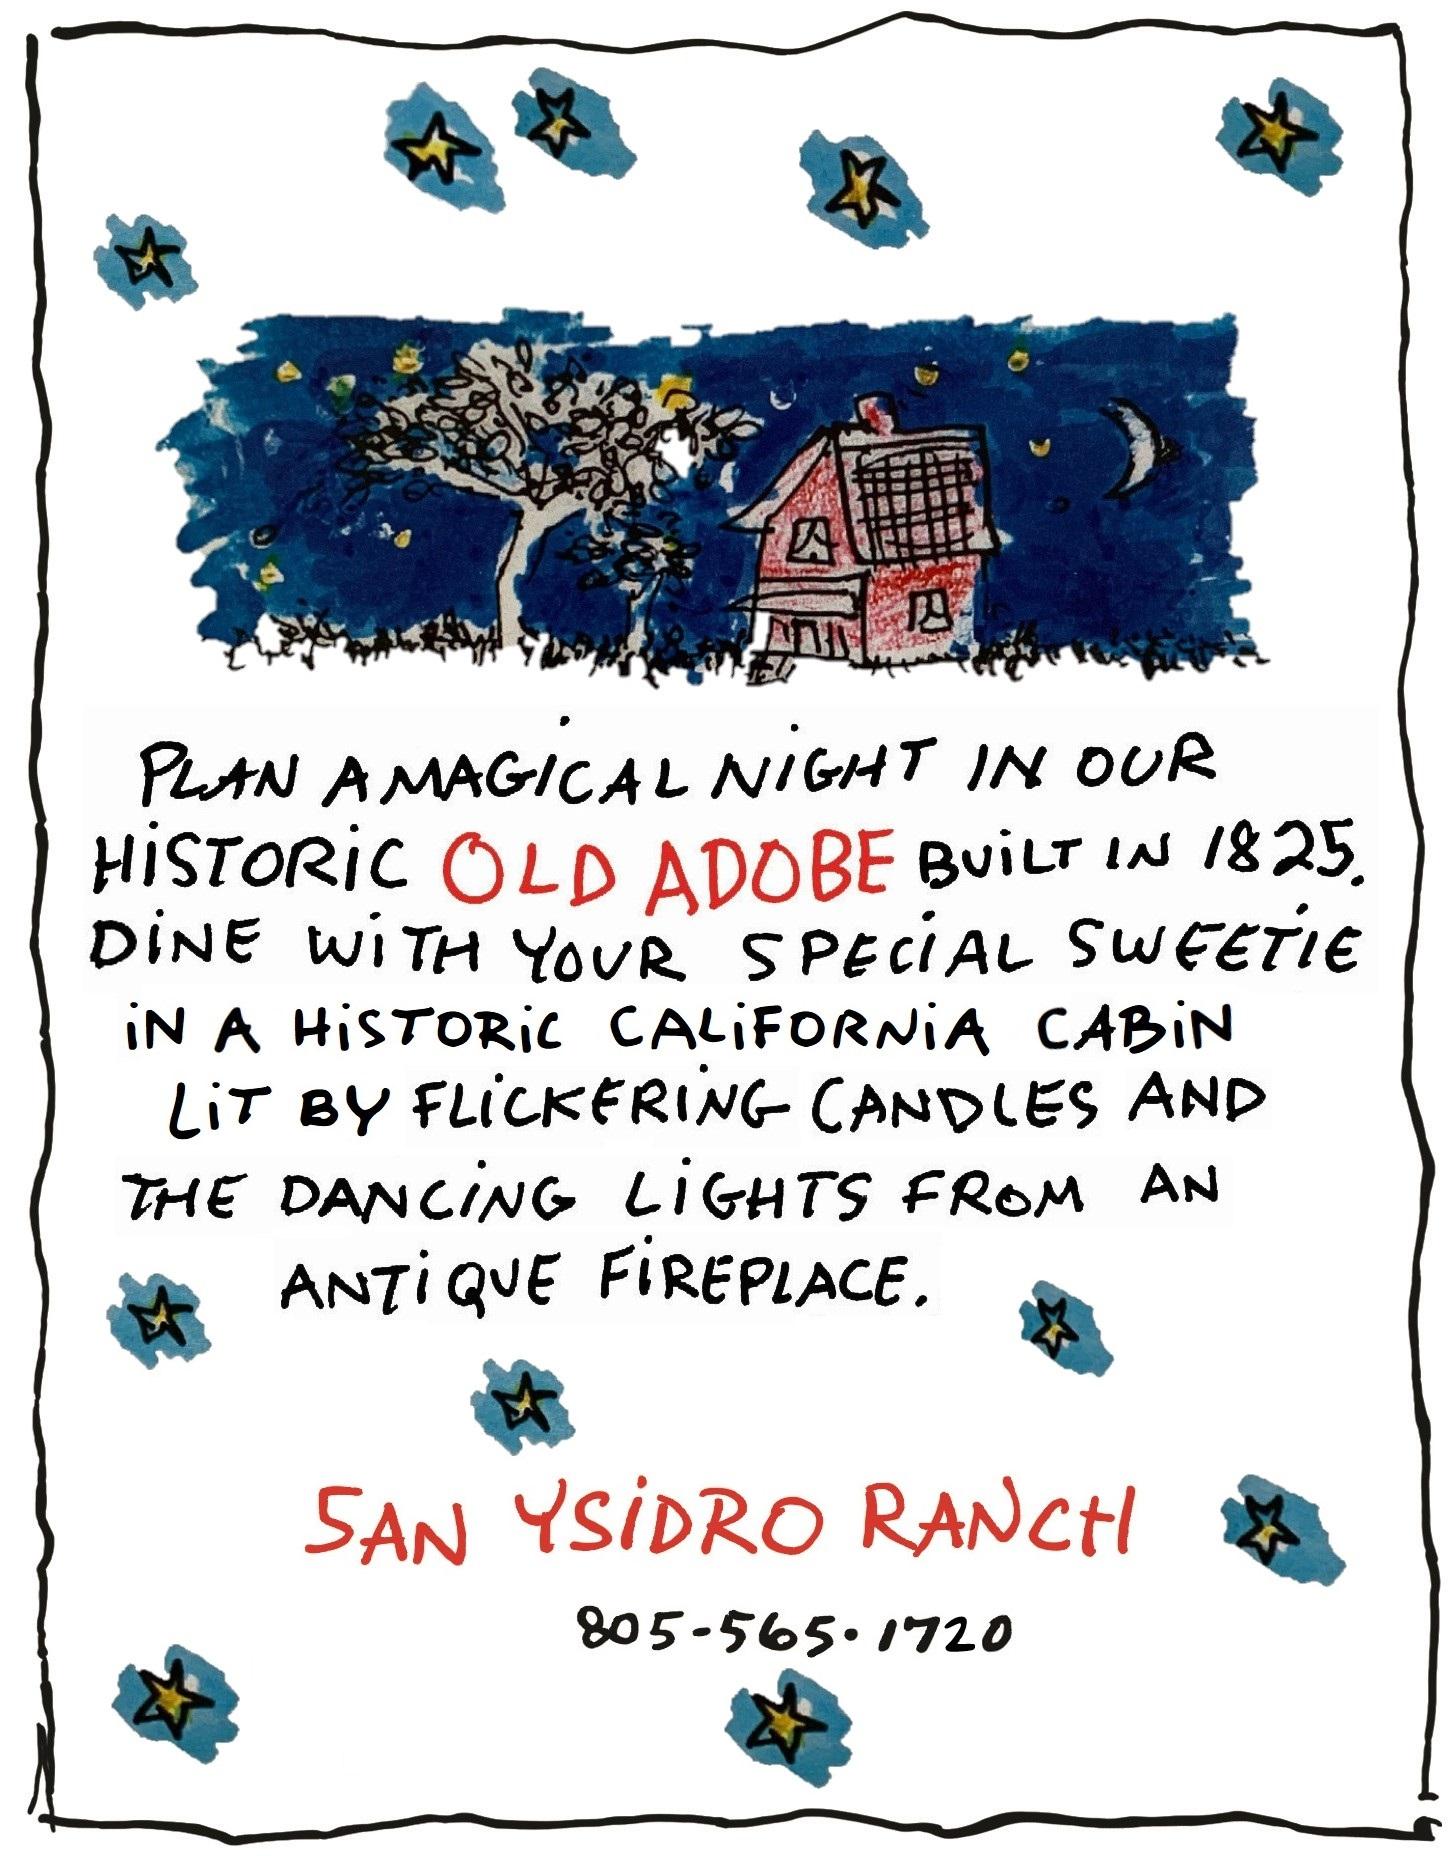 PLAN A MAGICAL NIGHT IN OUR
HISTORIC OLD ADOBE BUILT IN 1825.
DINE WITH YOUR SPECIAL SWEETIE
IN A HISTORIC CALIFORNIA CABIN
LIT BY FLICKERING CANDLES AND
THE DANCING LIGHTS FROM AN
ANTIQUE FIREPLACE.
SAN YSIDRO RANCH
805-565·1720